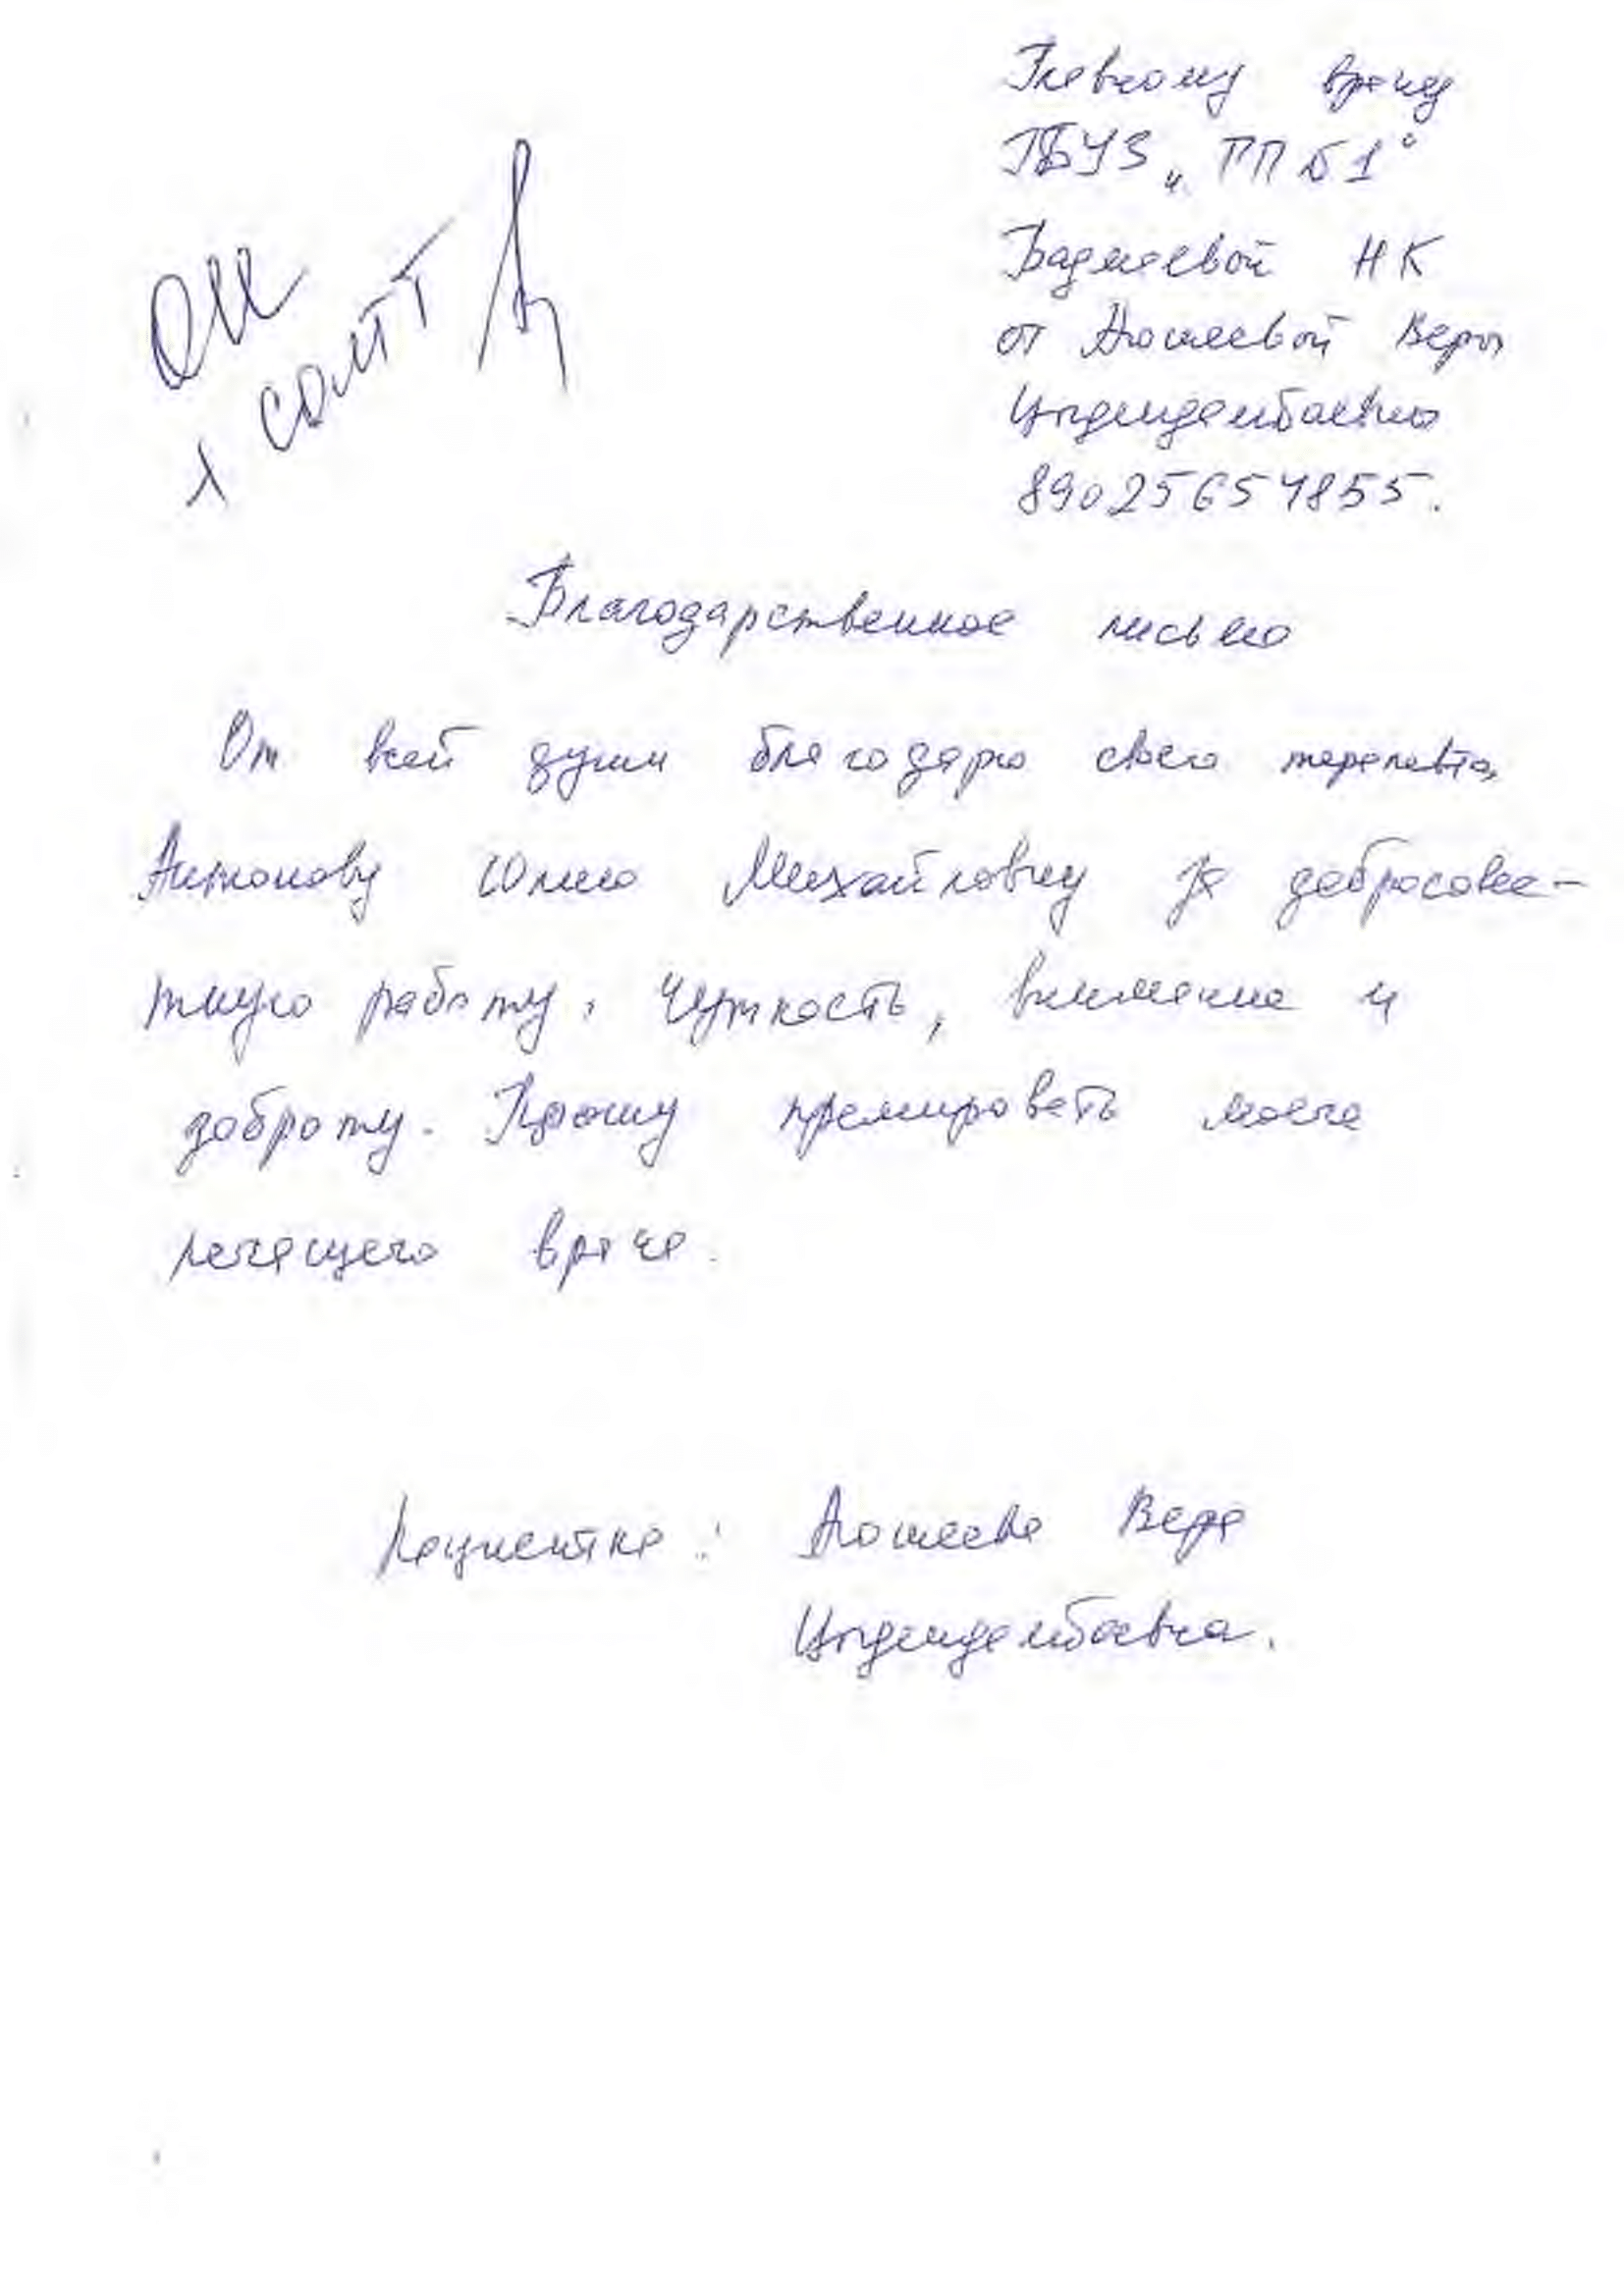 Главному врачу
ГБУЗ „ГП №1"
Бадмаевой НК
от Аюшеевой Веры
Цыдендамбаевны
89025654855.
ОМ
сайт
Благодарственное письмо
От всей души благодарю своего терапевта,
Антонову Юлию Михайловну за добросовес-
тную работу, чуткость, внимание и
доброту. Прошу премировать моего
лечащего врача.
Пациентка: Аюшеева Вера
Цыдендамбаевна.